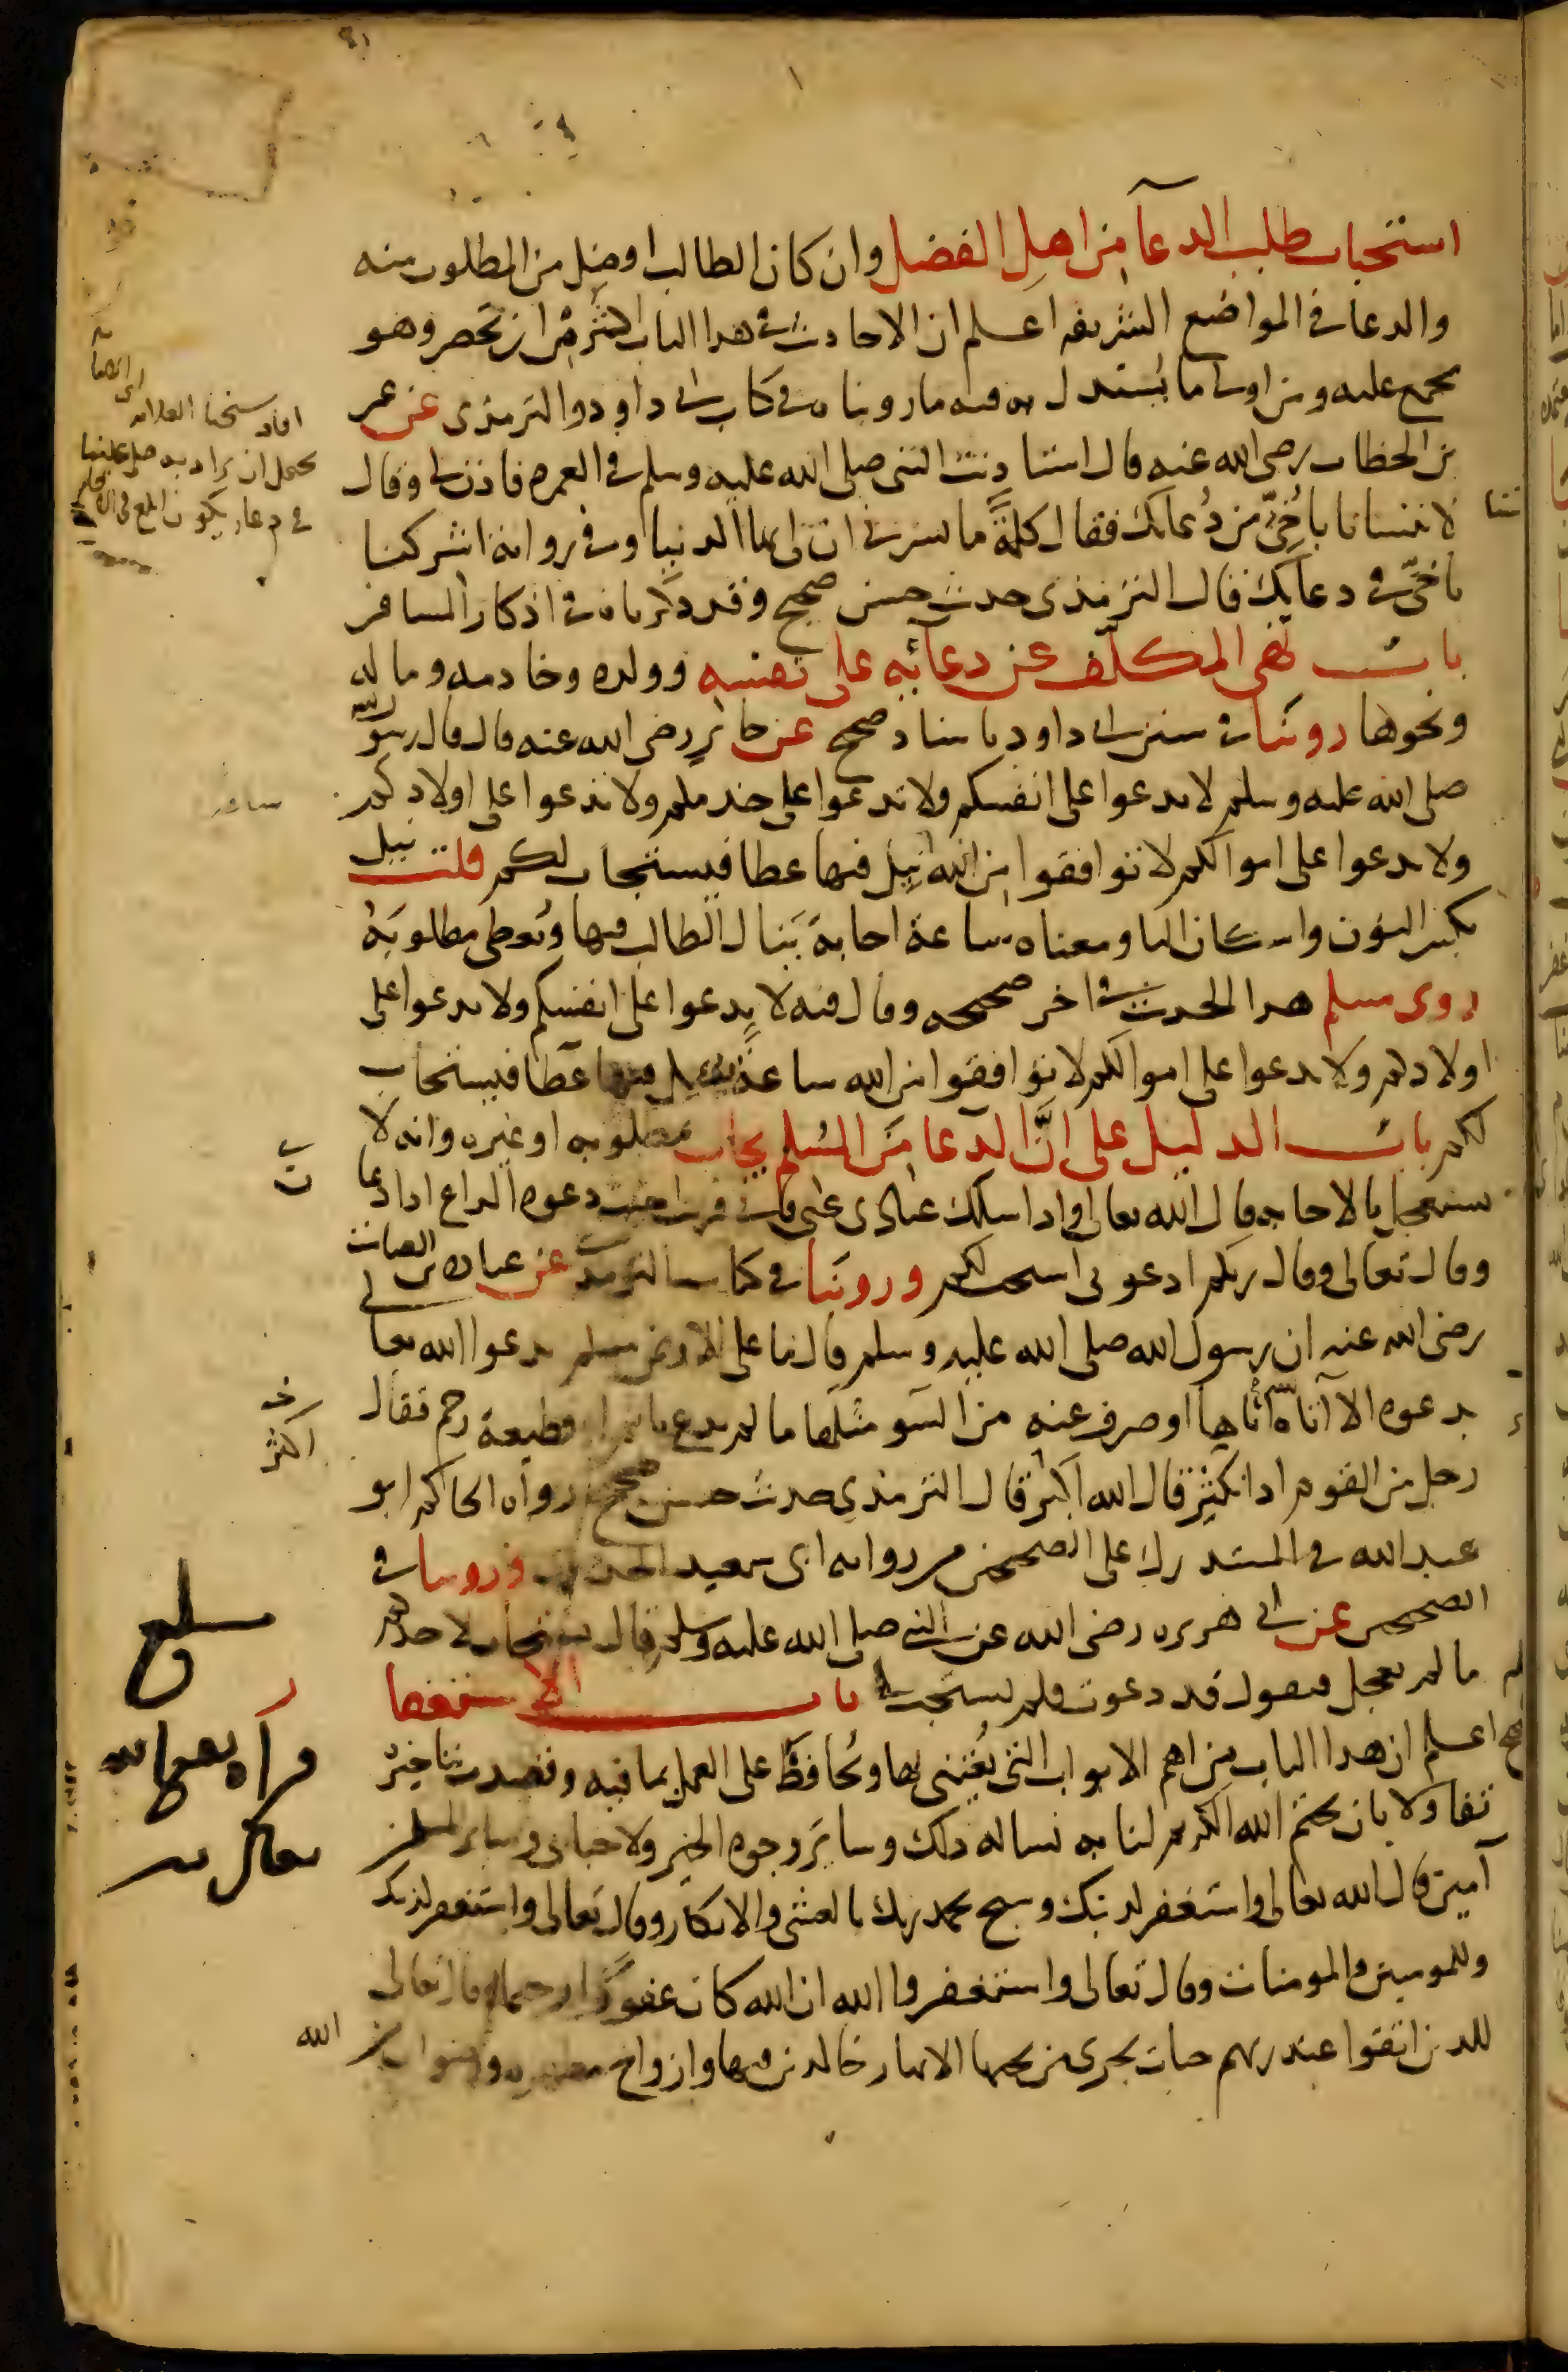 استحباب طلب الدعآ من اهل الفضل وان كان الطالب افضل من المطلوب منه
والدعا في المواضع الشريفه اعلم ان الاحاديث في هذا الباب اكثر من ان تحصر وهو
مجمع عليه ومن اول ما يستدل به فيه ما روينا ه في كتاب ابي داود والترمذي عن عمر
بن الخطاب رضي الله عنه قال استاذنت النبي صلى الله عليه وسلم في العمره فاذن لي وقال
لا تنسانا يا أُخيّ من دُعائك فقال كلمةً ما يسرني ان لي بها الدنيا وفي رواية اشركنا
يا أخيّ في دعآيك قال الترمذي حديث حسن صحيح وقد ذكرناه في اذكار المسافر
باب نهي المكلّف عن دعآئه على نفسه وولده وخادمه وماله
ونحوها روينا في سنن ابي داود باسناد صحيح عن جابر رضي الله عنه قال قال رسول الله
صلى الله عليه وسلم لا تدعوا على انفسكم ولا تدعوا على خدمكم ولا تدعوا على اولادكم
ولا تدعوا على اموالكم لا توافقوا من الله نيل فيها عطا فيستجاب لكم قلت نيل
بكسر النون واسكان اليا ومعناه ساعة اجابة يَنال الطالب فيها ويُعطى مطلوبَهُ
روى مسلم هذا الحديث في اخر صحيحه وقال فيه لا تدعوا على انفسكم ولا تدعوا على
اولادكم ولا تدعوا على اموالكم لا توافقوا من الله ساعةً فيها عطآ فيستجاب
لكم باب الدليل على انَّ الدعا من المُسلم يجاب بمطلوبه او غيره وانه لا
يستعجل بالاجابه قال الله تعالى واذا سالك عبادي عني فاني قريب اجيب دعوه الداع اذا دعان
وقال تعالى وقال ربكم ادعوني استجب لكم وروينا في كتاب الترمذي عن عباده بن الصامت
رضي الله عنه ان رسول الله صلى الله عليه وسلم قال ما على الارض مسلم يدعوا الله تعالى
بدعوه الا آتاه الله اياها او صرف عنه من السّو مثلها ما لم يدع باثم او قطيعة رحم فقال
رجل من القوم اذا نكثر قال الله اكثر قال الترمذي حديث حسن صحيح ورواه الحاكم ابو
عبد الله في المستدرك على الصحيحين من روايه ابي سعيد الخدري وروينا في
الصحيحين عن ابي هريره رضي الله عنه عن النبي صلى الله عليه وسلم قال يستجاب لاحدكم
ما لم يعجل فيقول قد دعوت فلم يستجب لي باب الاستغفار
اعلم ان هذا الباب من اهم الابواب التي يُعتنى بها ويُحافظُ على العمل بما فيه وقصدت بتاخيره
تفاولا بان يختم الله الكريم لنا به نساله ذلك وساير وجوه الخير ولاحبابي وساير المسلمين
آمين قال الله تعالى واستغفر لذنبك وسبح بحمد ربك بالعشي والابكار وقال تعالى واستغفر لذنبك
وللمومنين والمومنات وقال تعالى واستغفروا الله ان الله كان غفورًا رحيما وقال تعالى
للذين اتقوا عند ربهم جنات تجري من تحتها الانهار خالدين فيها وازواج مطهره ورضوان من
الله
افاد شيخنا العلامه
يحتمل ان يراد به
اكثر
ساعه
بلغ
قراه